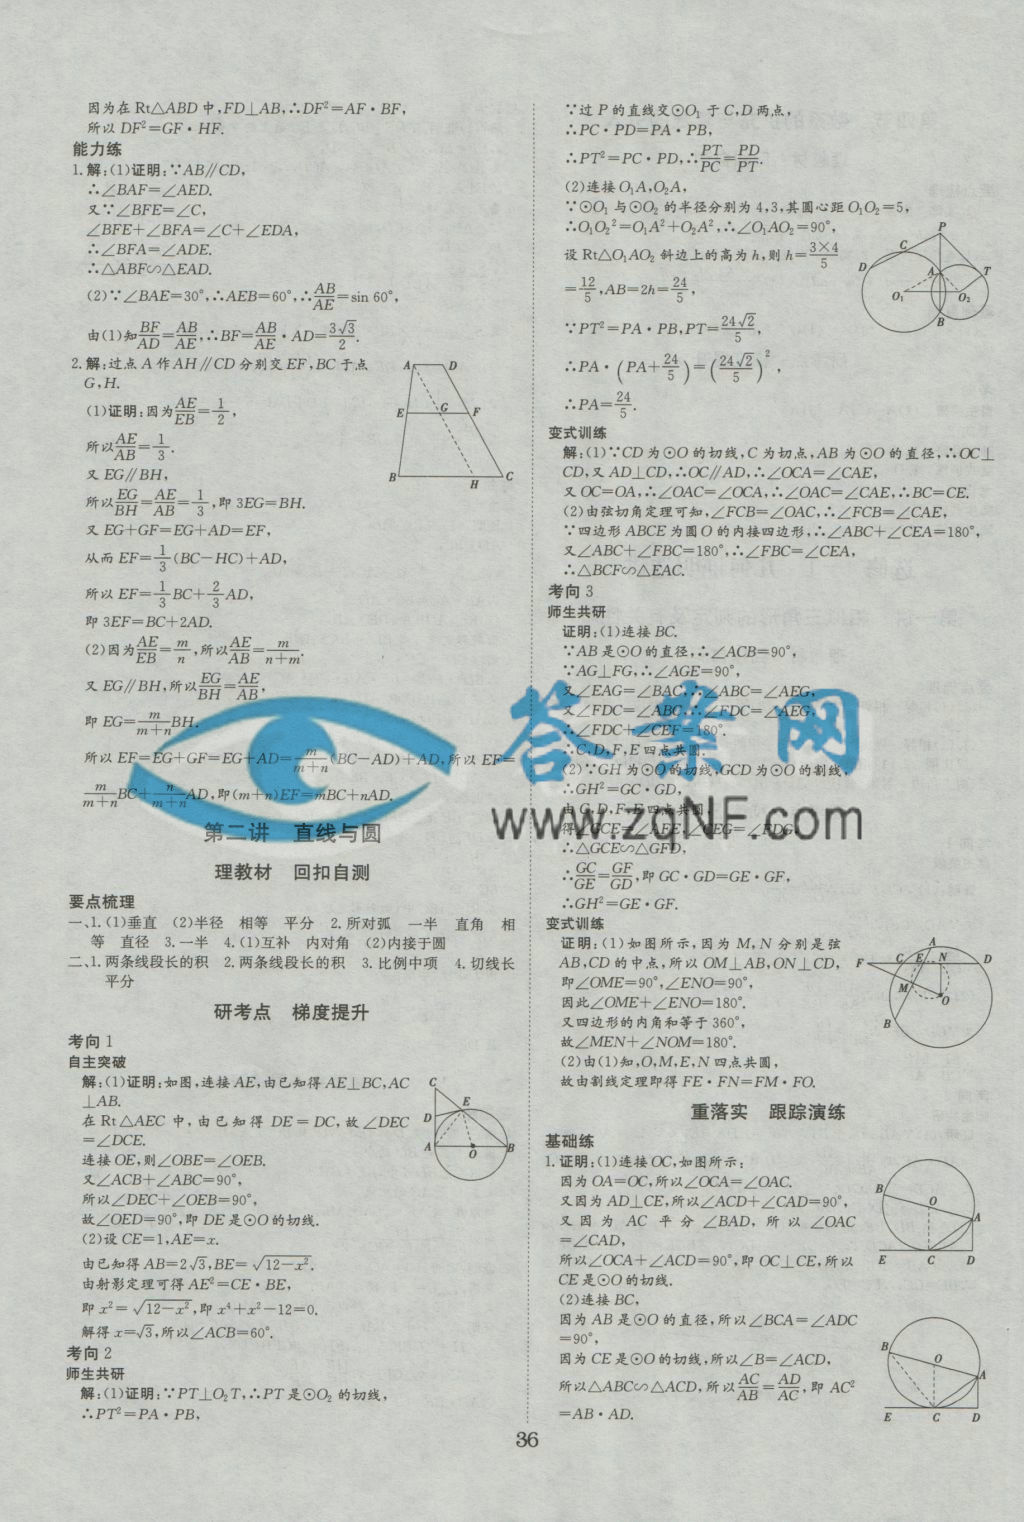 因为在 Rt△ABD 中,FD⊥AB,∴DF²=AF·BF,
所以 DF²=GF·HF.
能力练
1. 解:(1)证明:∵AB∥CD,
∴∠BAF=∠AED.
又∵∠BFE=∠C,
∠BFE+∠BFA=∠C+∠EDA,
∴∠BFA=∠ADE.
∴△ABF∽△EAD.
(2)∵∠BAE=30°,∴∠AEB=60°,∴AB/AE=sin 60°,
由(1)知BF/AD=AB/AE,∴BF=AB/AE·AD=3√3/2.
2. 解:过点 A 作 AH∥CD 分别交 EF,BC 于点
G,H.
(1)证明:因为AE/EB=1/2,
所以AE/AB=1/3.
又 EG∥BH,
所以EG/BH=AE/AB=1/3,即 3EG=BH.
又 EG+GF=EG+AD=EF,
从而 EF=1/3(BC-HC)+AD,
所以 EF=1/3BC+2/3AD,
即 3EF=BC+2AD.
(2)因为AE/EB=m/n,所以AE/AB=m/(n+m).
又 EG∥BH,所以EG/BH=AE/AB,
即 EG=m/(m+n)BH.
所以 EF=EG+GF=EG+AD=m/(m+n)(BC-AD)+AD,所以 EF=
m/(m+n)BC+n/(m+n)AD,即(m+n)EF=mBC+nAD.
A D
E G F
B H C
第二讲 直线与圆
理教材 回扣自测
要点梳理
一、1. (1)垂直 (2)半径 相等 平分 2. 所对弧 一半 直角 相
等 直径 3. 一半 4. (1)互补 内对角 (2)内接于圆
二、1. 两条线段长的积 2. 两条线段长的积 3. 比例中项 4. 切线长
平分
研考点 梯度提升
考向 1
自主突破
解:(1)证明:如图,连接 AE,由已知得 AE⊥BC,AC
⊥AB.
在 Rt△AEC 中,由已知得 DE=DC,故∠DEC
=∠DCE.
连接 OE,则∠OBE=∠OEB.
又∠ACB+∠ABC=90°,
所以∠DEC+∠OEB=90°,
故∠OED=90°,即 DE 是⊙O 的切线.
(2)设 CE=1,AE=x.
由已知得 AB=2√3,BE=√(12-x²).
由射影定理可得 AE²=CE·BE,
即 x²=√(12-x²),即 x⁴+x²-12=0.
解得 x=√3,所以∠ACB=60°.
C
D E
A O B
考向 2
师生共研
解:(1)证明:∵PT⊥O₂T,∴PT 是⊙O₂ 的切线,
∴PT²=PA·PB,
∵过 P 的直线交⊙O₁ 于 C,D 两点,
∴PC·PD=PA·PB,
∴PT²=PC·PD,∴PT/PC=PD/PT.
(2)连接 O₁A,O₂A,
∵⊙O₁ 与⊙O₂ 的半径分别为 4,3,其圆心距 O₁O₂=5,
∴O₁O₂²=O₁A²+O₂A²,∴∠O₁AO₂=90°,
设 Rt△O₁AO₂ 斜边上的高为 h,则 h=3×4/5
=12/5,AB=2h=24/5,
∵PT²=PA·PB,PT=24√2/5,
∴PA·(PA+24/5)=(24√2/5)²,
∴PA=24/5.
P
C
D A T
O₁ O₂
B
变式训练
解:(1)∵CD 为⊙O 的切线,C 为切点,AB 为⊙O 的直径,∴OC⊥
CD,又 AD⊥CD,∴OC∥AD,∴∠OCA=∠CAE,
又 OC=OA,∴∠OAC=∠OCA,∴∠OAC=∠CAE,∴BC=CE.
(2)由弦切角定理可知,∠FCB=∠OAC,∴∠FCB=∠CAE,
∵四边形 ABCE 为圆 O 的内接四边形,∴∠ABC+∠CEA=180°,
又∠ABC+∠FBC=180°,∴∠FBC=∠CEA,
∴△BCF∽△EAC.
考向 3
师生共研
证明:(1)连接 BC.
∵AB 是⊙O 的直径,∴∠ACB=90°,
∵AG⊥FG,∴∠AGE=90°,
又∠EAG=∠BAC,∴∠ABC=∠AEG,
又∠FDC=∠ABC,∴∠FDC=∠AEG,
∴∠FDC+∠CEF=180°.
∴C,D,F,E 四点共圆.
(2)∵GH 为⊙O 的切线,GCD 为⊙O 的割线,
∴GH²=GC·GD,
由 C,D,F,E 四点共圆,
得∠GCE=∠AFE,∠CEG=∠FDG,
∴△GCE∽△GFD,
∴GC/GE=GF/GD,即 GC·GD=GE·GF,
∴GH²=GE·GF.
变式训练
证明:(1)如图所示,因为 M,N 分别是弦
AB,CD 的中点,所以 OM⊥AB,ON⊥CD,
即∠OME=90°,∠ENO=90°,
因此∠OME+∠ENO=180°.
又四边形的内角和等于 360°,
故∠MEN+∠NOM=180°.
(2)由(1)知,O,M,E,N 四点共圆,
故由割线定理即得 FE·FN=FM·FO.
A
F C E N D
M O
B
重落实 跟踪演练
基础练
1. 证明:(1)连接 OC,如图所示:
因为 OA=OC,所以∠OCA=∠OAC.
又因为 AD⊥CE,所以∠ACD+∠CAD=90°,
又因为 AC 平分∠BAD,所以∠OAC
=∠CAD,
所以∠OCA+∠ACD=90°,即 OC⊥CE,所以
CE 是⊙O 的切线.
(2)连接 BC,
因为 AB 是⊙O 的直径,所以∠BCA=∠ADC
=90°,
因为 CE 是⊙O 的切线,所以∠B=∠ACD,
所以△ABC∽△ACD,所以AC/AB=AD/AC,即 AC²
=AB·AD.
B O A
E C D
B O A
E C D
答案网
www.zqNF.com
36